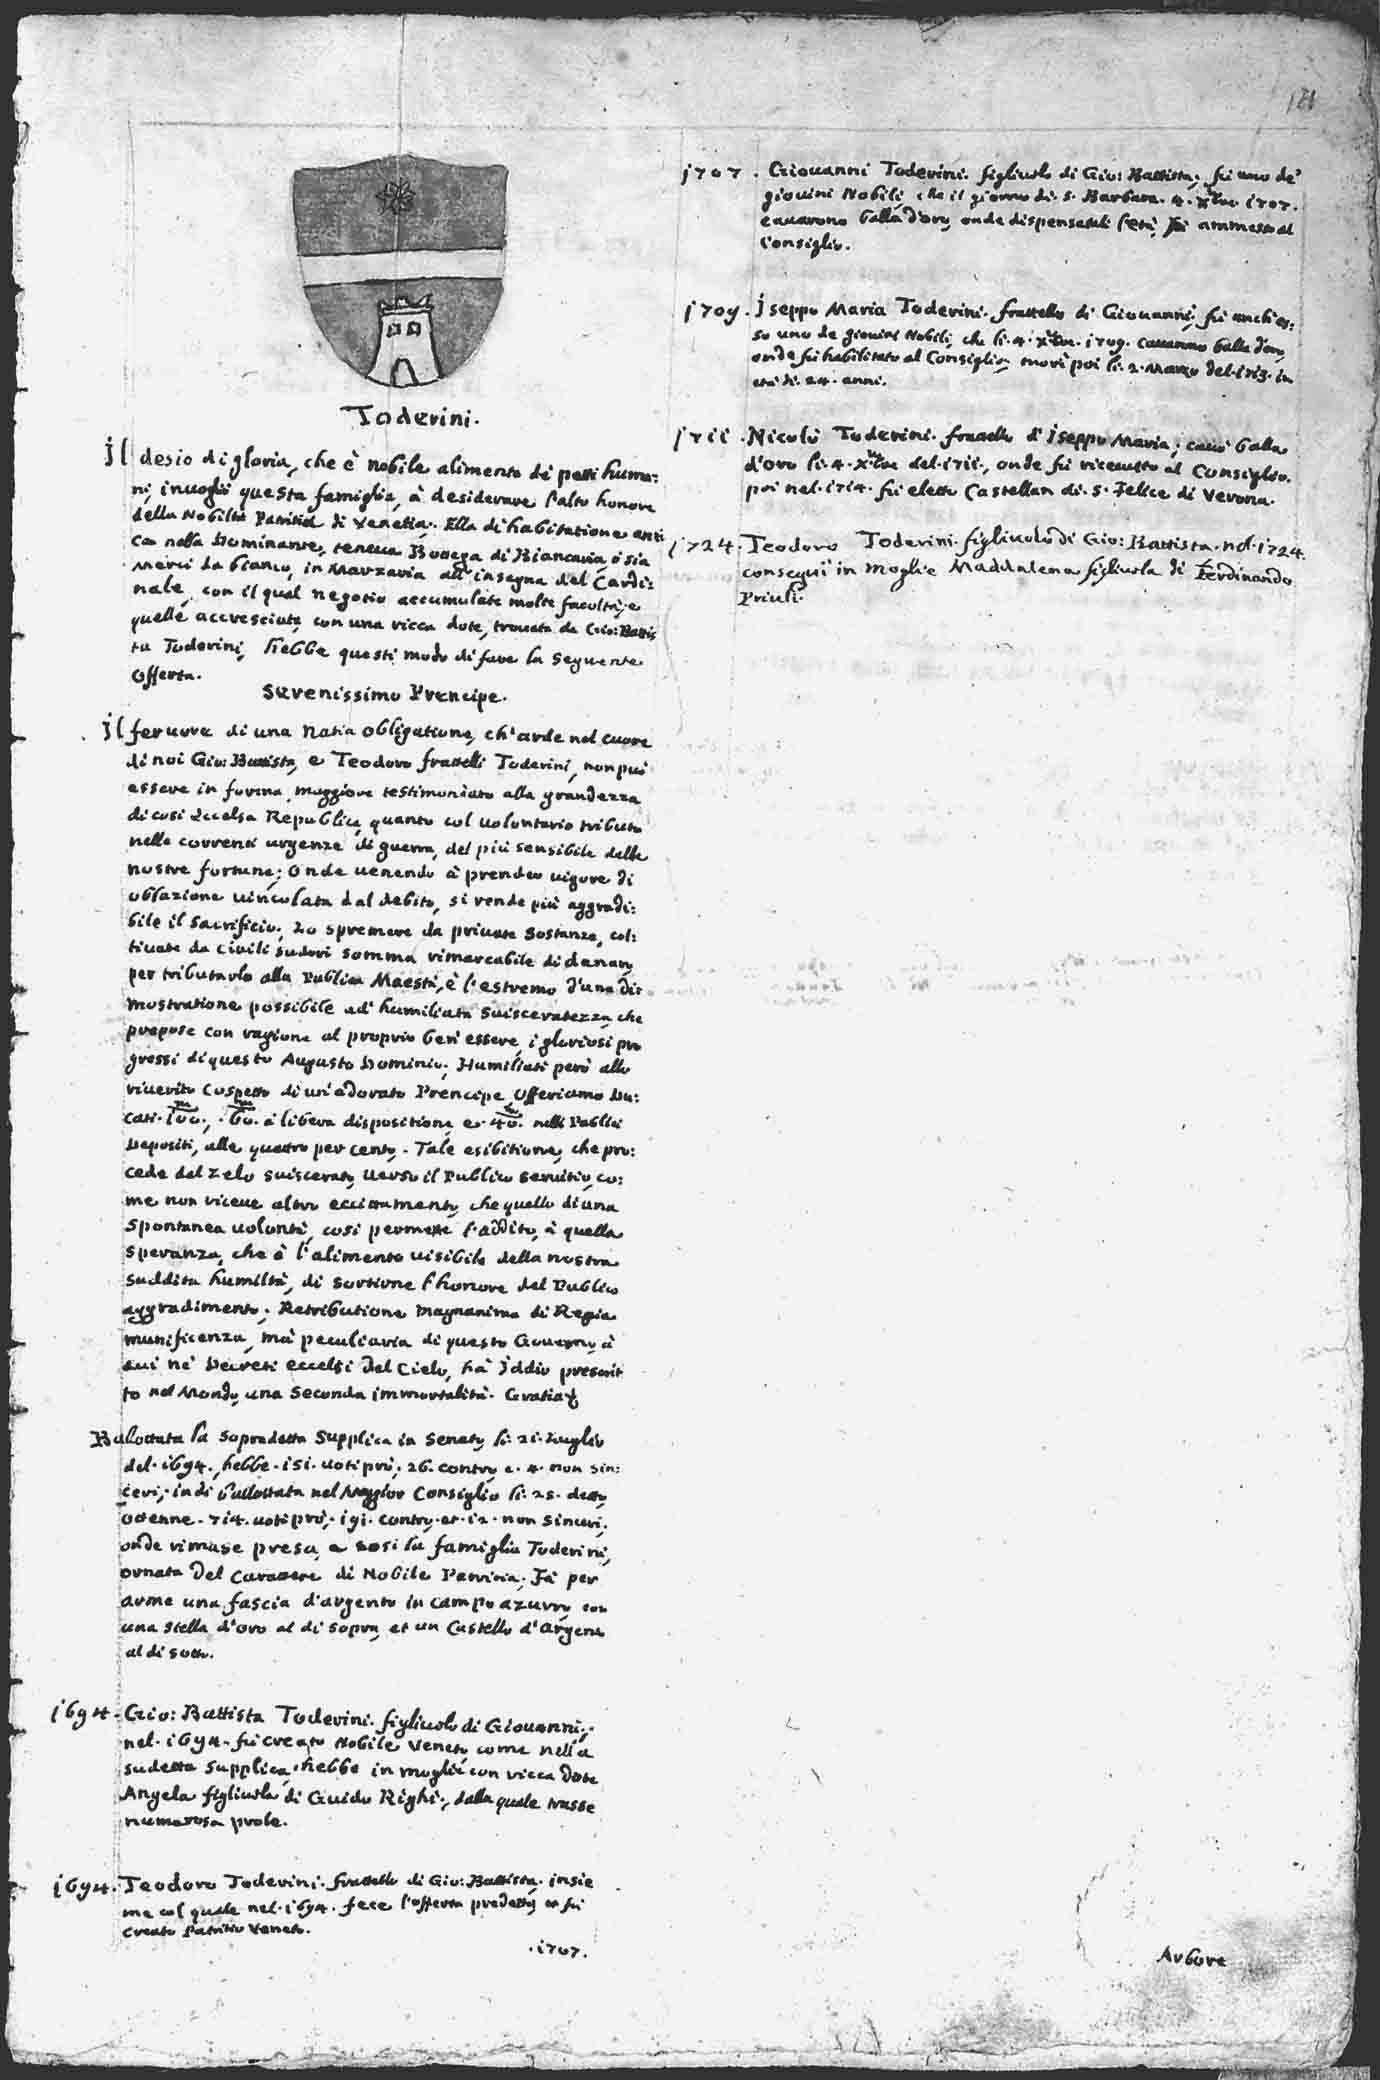 181
Toderini.
Il desio di gloria, che è nobile alimento de petti huma:
ni, inuogliò questa famiglia, à desiderare l'alto honore
della Nobiltà Patritia di Venetia. Ella di habitatione anti
ca nella Dominante, teneua Bottega di Biancaria, ò sia
Merci da bianco, in Marzaria all'insegna del Cardi:
nale, con il qual negotio accumulate molte facoltà, e
quelle accresciute con una ricca dote, trouata da Gio: Battis
ta Toderini, hebbe questi modo di fare la seguente
Offerta.
Serenissimo Prencipe.
Il feruore di una Natia obligatione, ch'arde nel cuore
di noi Gio: Battista, e Teodoro fratelli Toderini, non può
essere in forma maggiore testimoniato alla grandezza
di così Eccelsa Republica, quanto col uolontario tributo
nelle correnti urgenze di guerra, del più sensibile delle
nostre fortune; Onde uenendo à prender uigore di
oblazione uincolata dal debito, si rende più aggradi:
bile il Sacrificio. Lo spremere da priuate Sostanze, col:
tiuate da Ciuili sudori somma rimarcabile di danaro,
per tributarlo alla Publica Maestà, è l'estremo d'una di:
mostratione possibile ad' humiliata Suisceratezza, che
prepone con ragione al proprio ben'essere, i gloriosi pro
gressi di questo Augusto Dominio. Humiliati però allo
riuerito Cospetto di un'adorato Prencipe offeriamo Du:
cati. 100., . 60. à libera dispositione, e. 40. nelli Publici
Depositi, alle quattro per cento. Tale esibitione, che pro:
cede dal zelo suiscerato uerso il Publico Seruitio, co:
me non riceue altro eccittamento, che quello di una
Spontanea uolontà, così permette l'addito, à quella
Speranza, che è l'alimento uisibile della nostra
suddita humiltà, di sortire l'honore del Publico
aggradimento. Retributione magnanima di Regia
munificenza, mà peculiaria di questo Gouerno, à
cui ne' Decreti eccelsi del Cielo, hà Iddio prescrit
to nel Mondo, una Seconda immortalità. Gratia
Balottata la Sopradetta Supplica in Senato, li. 21. Luglio
del. 1694. hebbe. 151. uoti prò, 26. contro, e. 4. non sin:
ceri, indi ballottata nel Maggior Consiglio li. 25. detto
ottenne. 714. uoti prò, 191. contro, et. 12. non sinceri,
onde rimase presa, e così la famiglia Toderini,
ornata del Carattere di Nobile Patritia. Fà per
arme una fascia d'argento in campo azurro, con
una stella d'oro al di sopra, et un Castello d'Argento
al di sotto.
1694. Gio: Battista Toderini. figliuolo di Giouanni,
nel. 1694. fù creato Nobile Veneto come nella
sudetta Supplica, hebbe in moglie con ricca dote
Angela figliuola di Guido Righi, dalla quale trasse
numerosa prole.
1694. Teodoro Toderini. fratello di Gio: Battista, insie
me col quale nel. 1694. fece l'offerta predetta, et fù
creato Patritio Veneto.
.1707.
1707. Giouanni Toderini. figliuolo di Gio: Battista, fù uno de'
giouini Nobili, che il giorno di. S. Barbara. 4. Xbre. 1707.
cauarono balla d'oro, onde dispensatali l'età, fù ammesso al
Consiglio.
1709. Iseppo Maria Toderini. fratello di Giouanni, fù anch'es:
so uno de giouini Nobili, che li. 4. Xbre. 1709. cauarono balla d'oro,
onde fù habilitato al Consiglio, morì poi li. 2. Marzo del. 1713. in
età di. 24. anni.
1711. Nicolò Toderini. fratello di Iseppo Maria, cauò balla
d'oro li. 4. Xbre del. 1711., onde fù riceuuto al Consiglio,
poi nel. 1714. fù eletto Castellan di. S. Felice di Verona.
1724. Teodoro Toderini. figliuolo di Gio: Battista. nel. 1724.
conseguì in moglie Maddalena figliuola di Ferdinando
Priuli.
Arbore